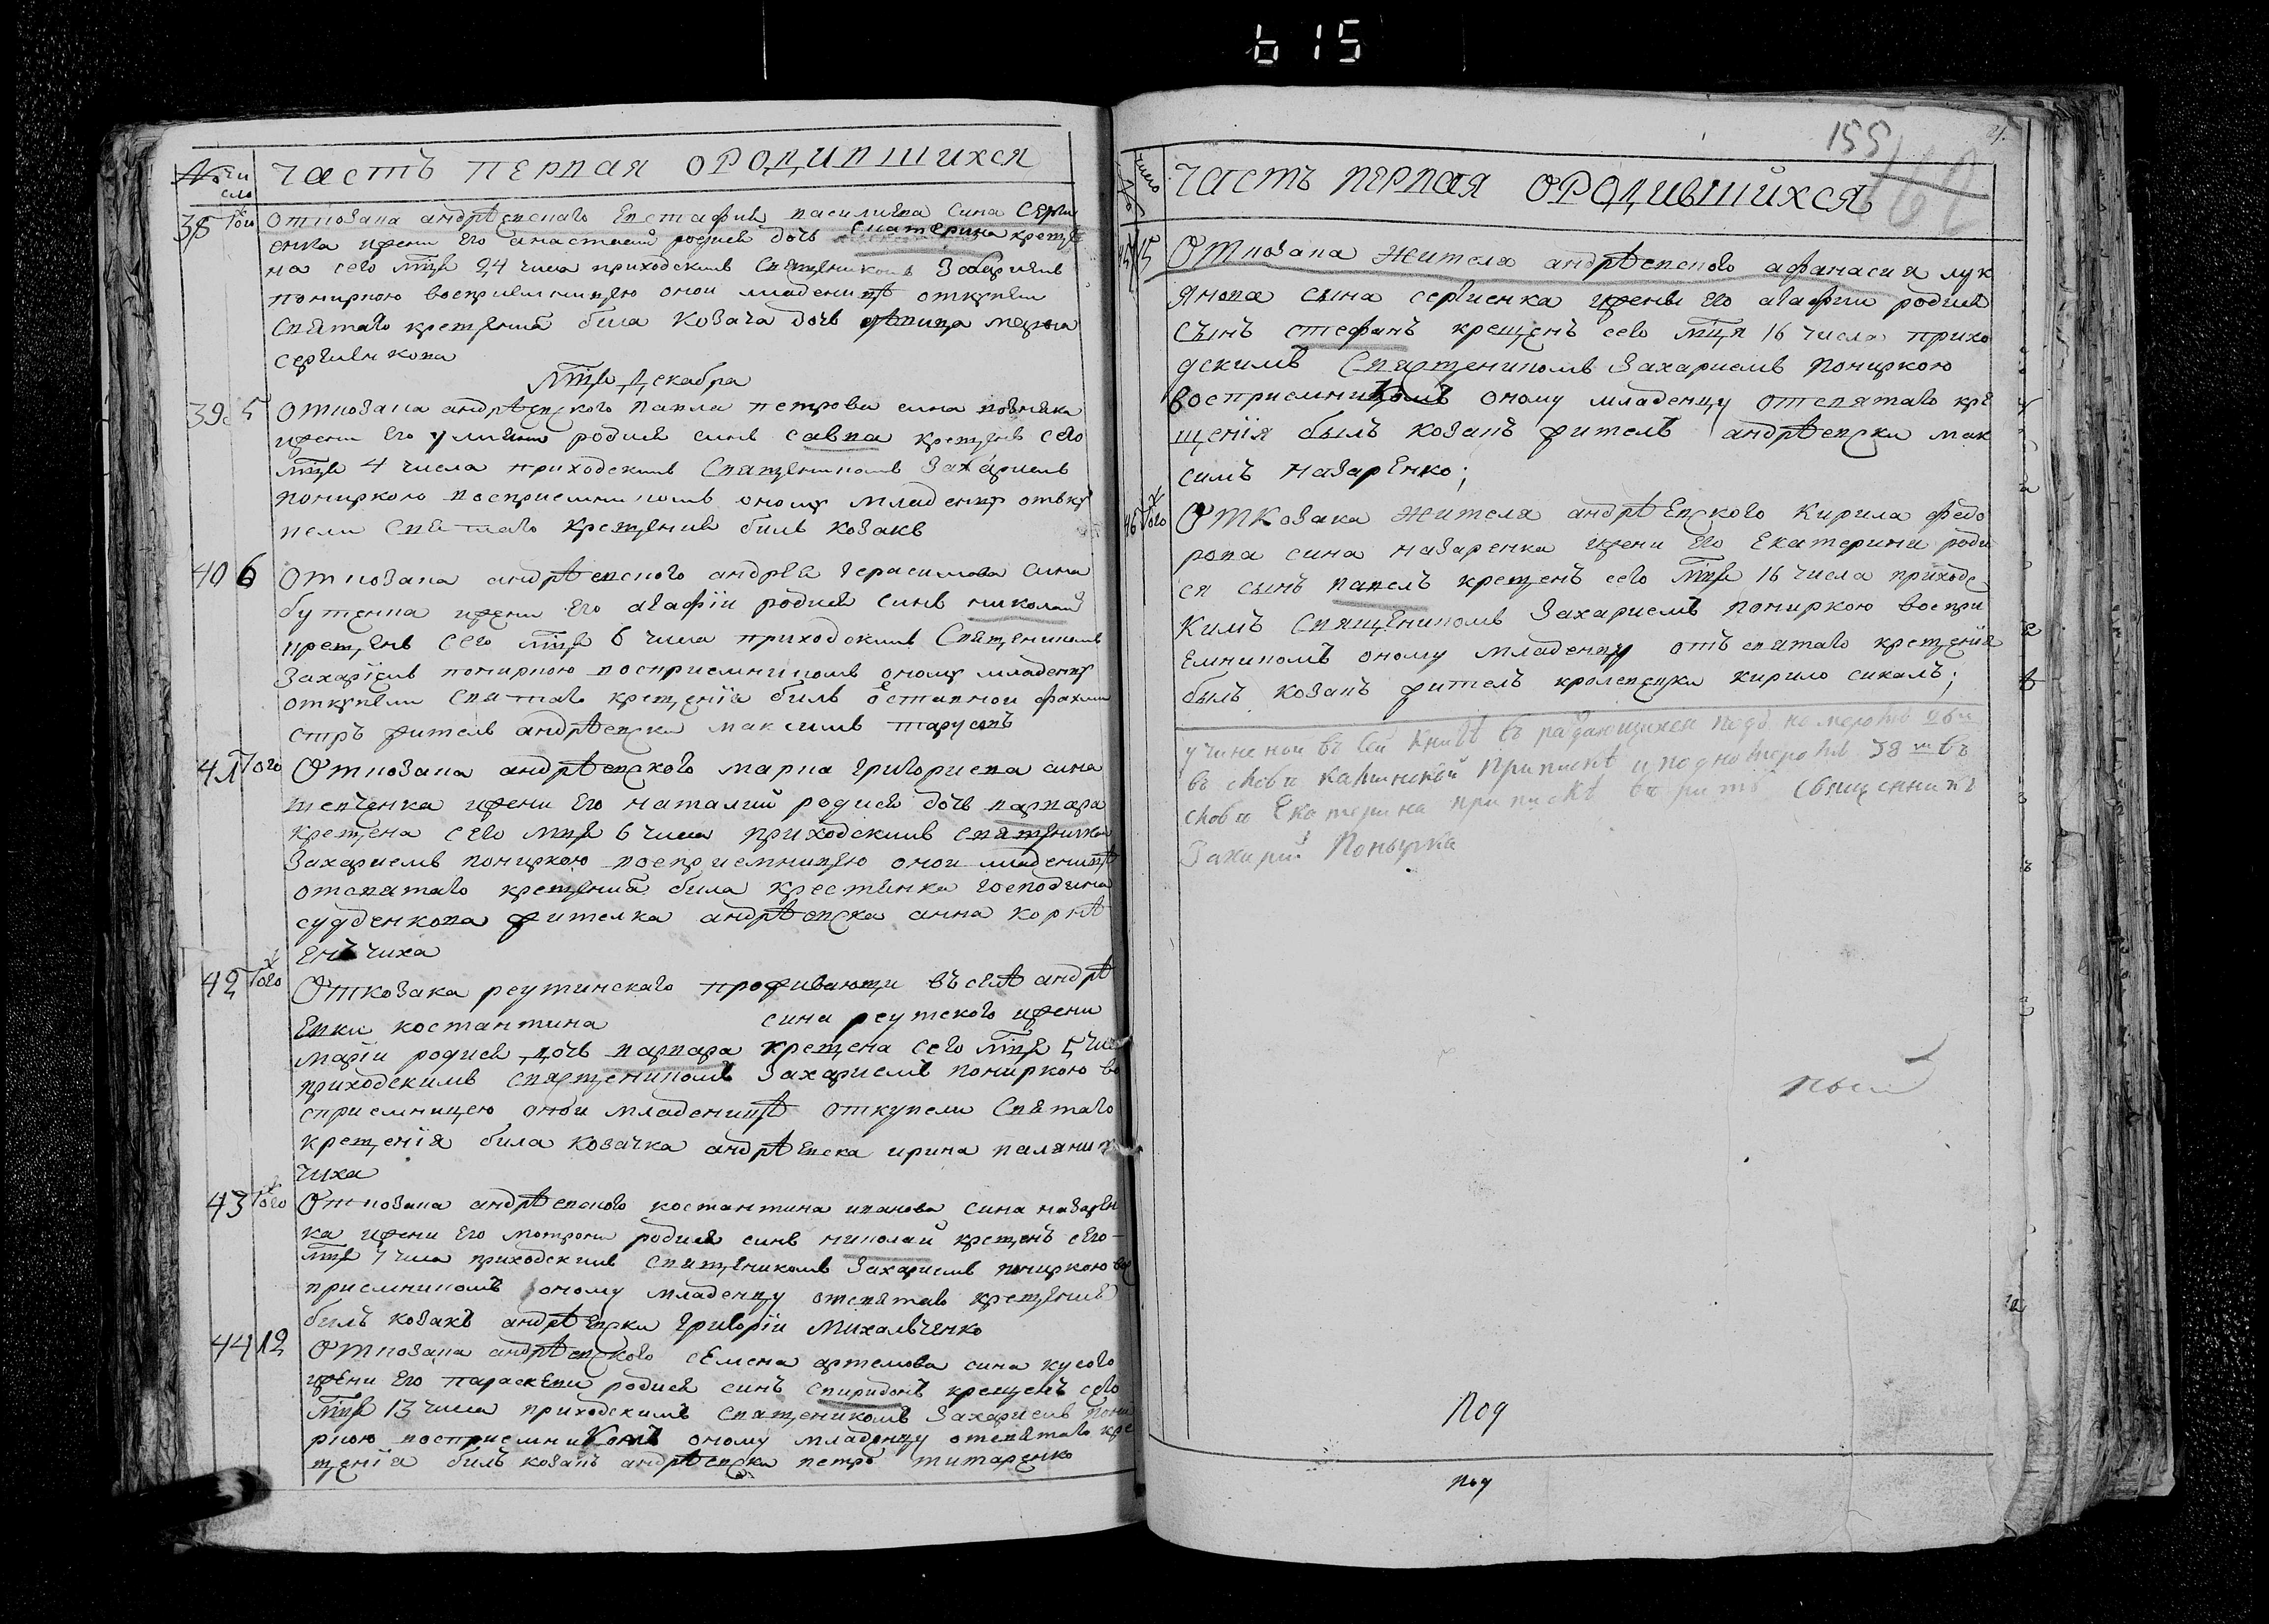 615
№ Чи
сло
ЧАСТЪ ПЕРВАЯ ОРОДИВШИХСЯ
38 Того Откозака андрѣевского Евстафия василиева сина Серги
енка и жени его анастасии родися дочь Екатерина креще
на сего мца 24 числа приходскимъ Священникомъ Захариемъ
пониркою восприемницею оной младеницѣ откупели
Святаго крещения била козача дочь девица мелания
сергиенкова
Мца декабра
39 5 Откозака андрѣевского павла петрова сина
жени его улияни родися синъ савва крещенъ сего
мца 4 числа приходскимъ Священникомъ Захариемъ
пониркою восприемникомъ оному младенцу отъку
пели Святаго крещения билъ козакъ
40 6 Откозака андрѣевского андрея герасимова сина
бутенка и жени его агафіи родися синъ николай
крещенъ сего мца 6 числа приходскимъ Священникомъ
Захаріемъ понирною восприемникомъ оному младенцу
откупели Святаго крещеніа билъ
житель андрѣевки максимъ
41 Того Откозака андрѣевского марка григориева сина
шевченка и жени его наталии родися дочь варвара
крещена сего мца 6 числа приходскимъ священником
Захариемъ понуркою восприемницею оной младеницѣ
отсвятаго крещения била крестянка господина
судденкова жителка андрѣевска анна корнѣ
енчиха
42 Того Откозака реутинскаго проживающи въ селѣ андрѣ
Евки костантина сина реутского и жени
маріи родися дочь варвара крещена сего мца 5 чис
приходскимъ священникомъ Захариемъ понуркою во
сприемницею оной младеницѣ откупели Святаго
крещенія била козачка андрѣевска ирина паляни
чиха
43 Того Откозака андрѣевского костантина иванова сина назарен
ка и жени его мотрони родися синъ николай крещенъ сего
мца 7 числа приходскимъ Священикомъ Захариемъ понуркою вос
приемникомъ оному младенцу отсвятаго крещения
билъ козакъ андрѣевски Григорїи Михальченко
44 12 Откозака андрѣевского семена артемова сина кусого
жени его параскеви родися синъ спиридонъ крещенъ сего
мца 13 числа приходскимъ священикомъ Захариемъ пони
ркою восприемникомъ оному младенцу отсвятаго кре
щеніа билъ козакъ андрѣевски петро титаренко
155
21.
№ число
ЧАСТЬ ПЕРВАЯ ОРОДИВШИХСЯ
45 15 Откозака жителя андрѣевского афанасия лук
янова сына сергиенка и жены его агафии родися
сынъ стефанъ крещенъ сего мця 16 числа прихо
дскимъ Священикомъ Захариемъ Понуркою
восприемникомъ оному младенцу отсвятаго кре
щенія былъ козакъ житель андрѣевски мак
симъ назаренко;
46 Того Отъ козака жителя андрѣевского Кирила федо
рова сина назаренка и жени его Екатерини роди
ся сынъ павелъ крещенъ сего мця 16 числа приходс
кимъ священикомъ Захариемъ понуркою воспри
емникомъ оному младенцу отъ святаго крещенія
былъ козакъ житель кролевецки кирило сикалъ;
учиненной въ сей книгѣ въ раждающихся подъ номеромъ
въ словѣ припискѣ и под номеромъ 38м въ
словѣ Екатерина припискѣ Священникъ
Захарий Понырка
Под
под